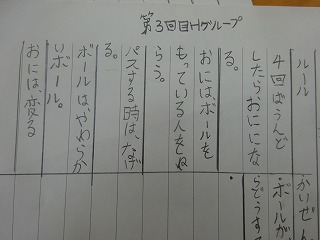 第3回目Hグループ
ルール
4回ばうんど
したらおにになる。
おには、ボールを
もっている人をね
らう。
パスする時は、なげ
る。
ボールはやわらか
いボール。
おには、変る
かいぜん
・ボールが
らどうす